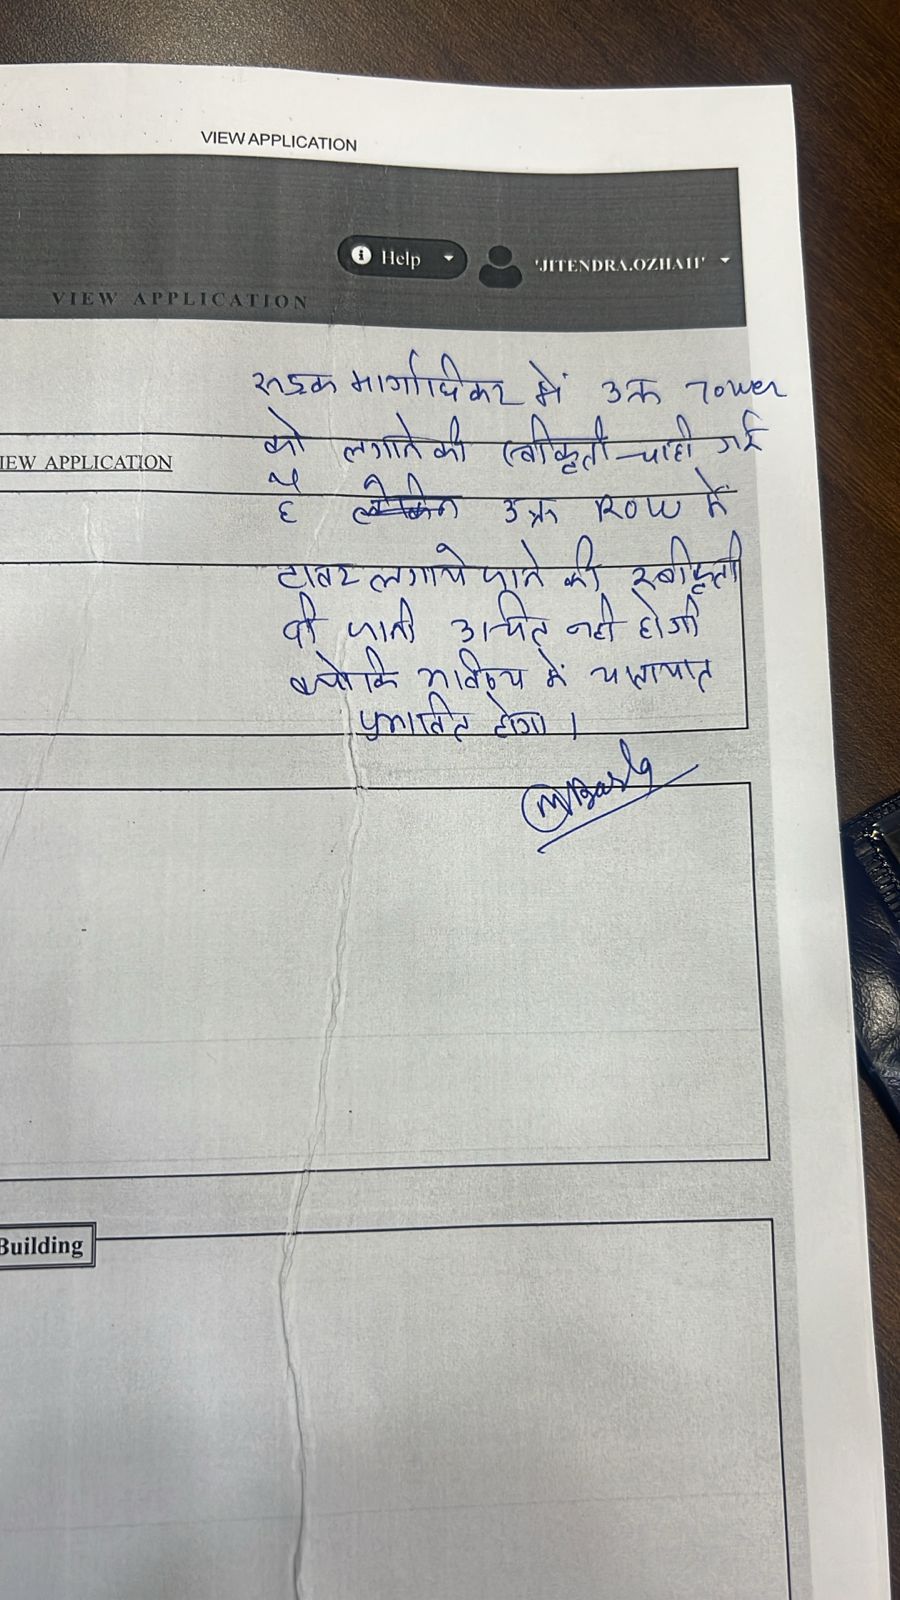 VIEW APPLICATION
Help
'JITENDRA.OZHA11'
VIEW APPLICATION
सड़क मार्गाधिकार में उक्त Tower
को लगाने की स्वीकृती चाही गई
IEW APPLICATION
है लेकिन उक्त ROW में
टावर लगाये जाने की स्वीकृती
दी जानी उचित नही होगी
क्योकि भविष्य में यातायात
प्रभावित होगा।
Building